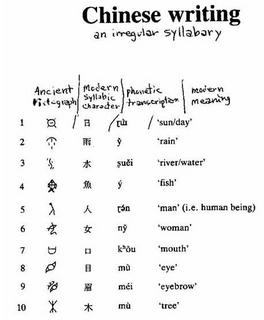 Chinese writing
an irregular syllabary
Ancient Pictograph / modern syllabic character / phonetic transcription / modern meaning
1 日 'sun/day'
2 雨 ŷ 'rain'
3 水 šuěi 'river/water'
4 魚 ý 'fish'
5 人 'man' (i.e. human being)
6 女 nŷ 'woman'
7 口 kʰǒu 'mouth'
8 目 mù 'eye'
9 眉 méi 'eyebrow'
10 木 mù 'tree'